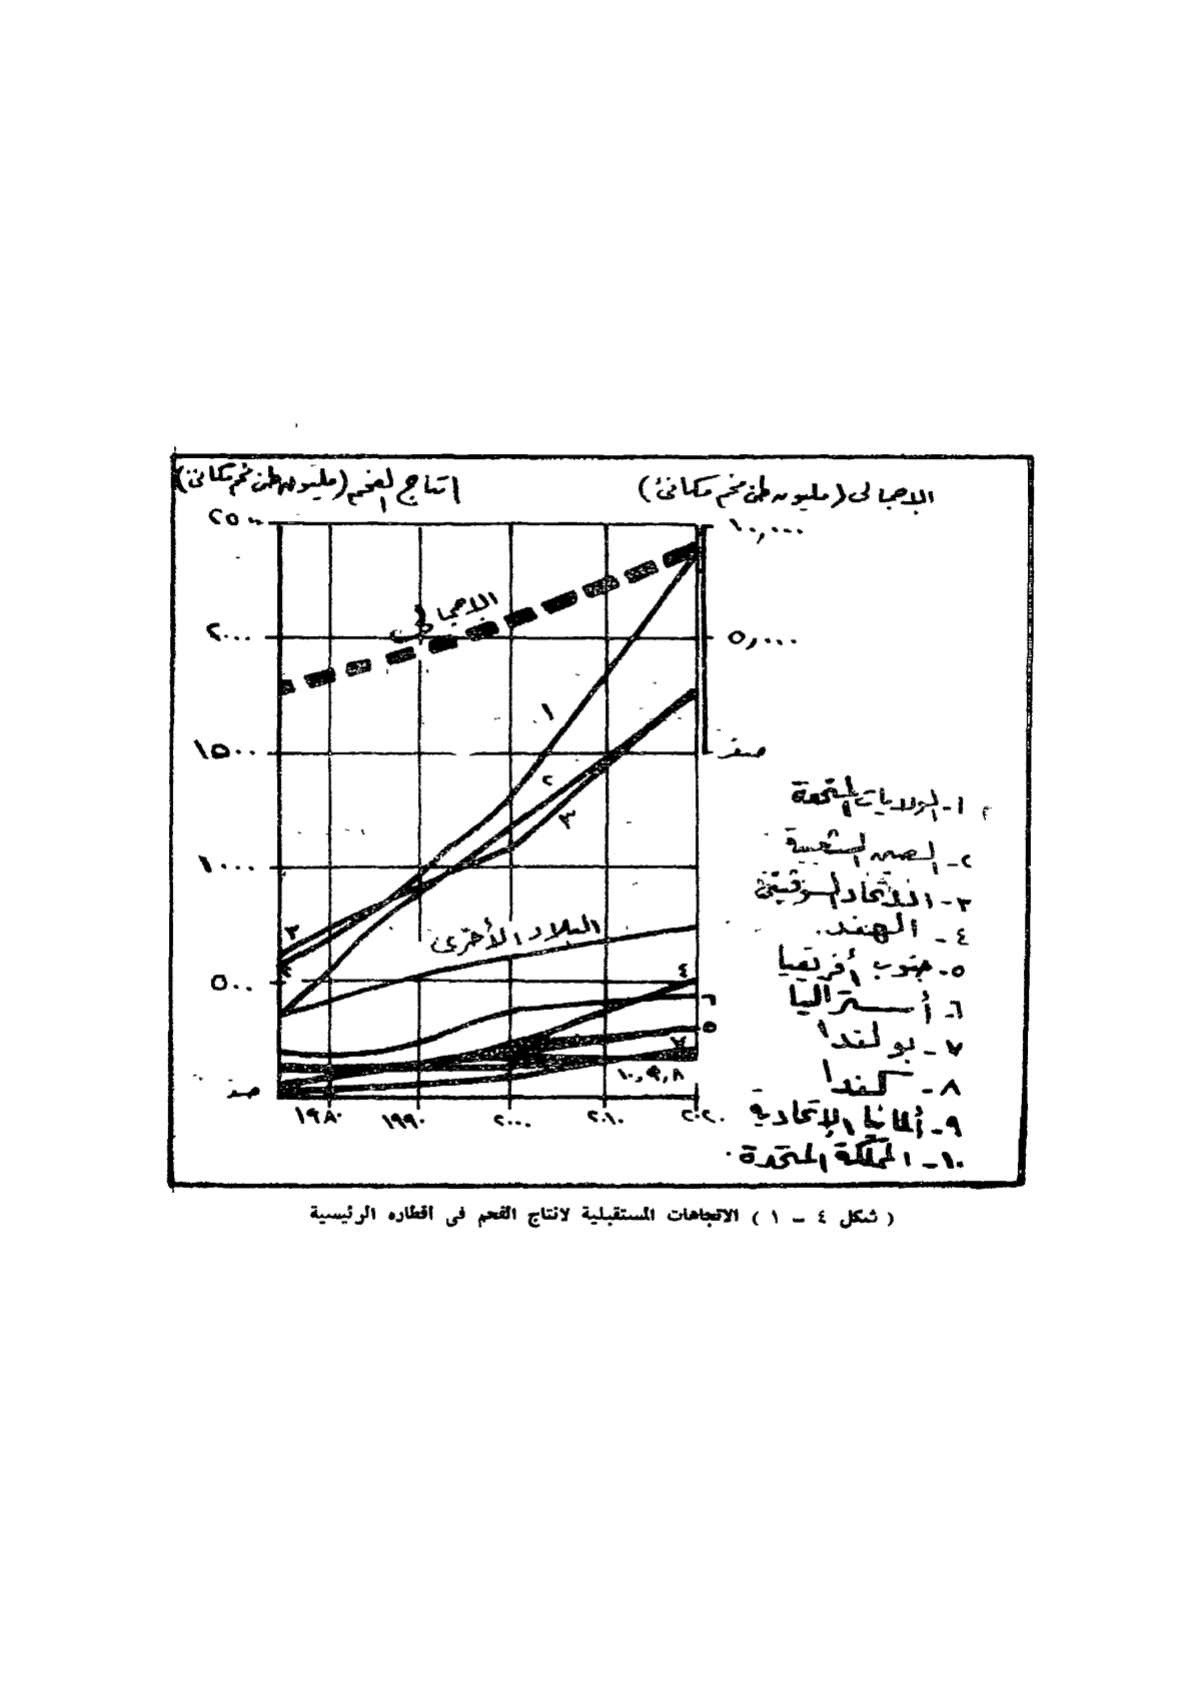 انتاج الفحم (مليون طن فحم مكافئ)
الاجمالى (مليون طن فحم مكافئ)
٢٥٠٠
١٠,٠٠٠
الاجمالى
٢٠٠٠
٥,٠٠٠
١
١٥٠٠
صفر
٢
٣
١٠٠٠
٣
البلاد الأخرى
٢
٤
٥٠٠
٦
٥
٧
١٠,٩,٨
صفر
١٩٨٠ ١٩٩٠ ٢٠٠٠ ٢٠١٠ ٢٠٢٠
١- الولايات المتحدة
٢- الصين الشعبية
٣- الاتحاد السوفيتى
٤- الهند.
٥- جنوب أفريقيا
٦- أستراليا
٧- بولندا
٨- كندا
٩- ألمانيا الاتحادية
١٠- المملكة المتحدة.
( شكل ٤ – ١ ) الاتجاهات المستقبلية لانتاج الفحم فى اقطاره الرئيسية